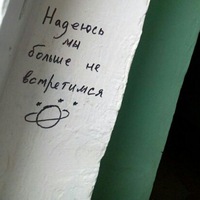 Надеюсь
мы
больше не
встретимся